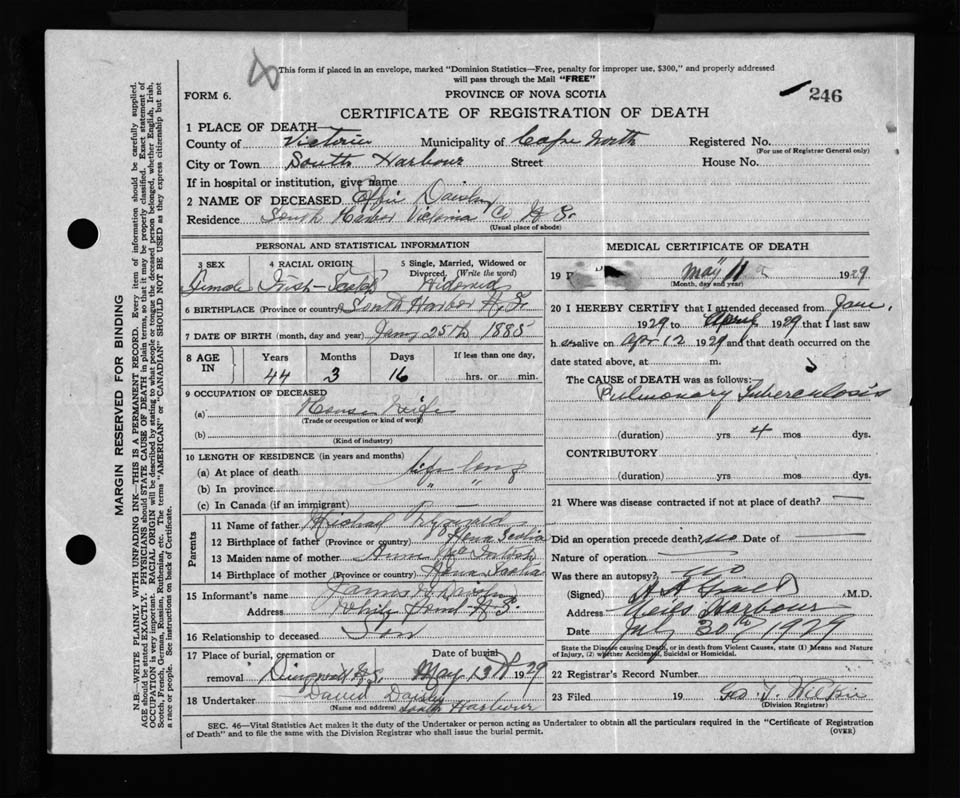 This form if placed in an envelope, marked "Dominion Statistics—Free, penalty for improper use, $300," and properly addressed
will pass through the Mail "FREE"
FORM 6.
PROVINCE OF NOVA SCOTIA
246
CERTIFICATE OF REGISTRATION OF DEATH
1 PLACE OF DEATH
County of Victoria Municipality of Cape North Registered No.
(For use of Registrar General only)
City or Town South Harbour Street House No.
If in hospital or institution, give name
2 NAME OF DECEASED Effie
Residence South Harbor Victoria Co N. S.
(Usual place of abode)
PERSONAL AND STATISTICAL INFORMATION
3 SEX 4 RACIAL ORIGIN 5 Single, Married, Widowed or
Divorced (Write the word)
Female Irish-Scotch Widowed
6 BIRTHPLACE (Province or country) South Harbor N. S.
7 DATE OF BIRTH (month, day and year) Jany 25th 1885
8 AGE IN Years Months Days If less than one day,
44 3 16 hrs. or min.
9 OCCUPATION OF DECEASED
(a) House Wife
(Trade or occupation or kind of work)
(b)
(Kind of industry)
10 LENGTH OF RESIDENCE (in years and months)
(a) At place of death life long
(b) In province " "
(c) In Canada (if an immigrant)
Parents
11 Name of father Michael
12 Birthplace of father (Province or country) Nova Scotia
13 Maiden name of mother Annie McIntosh
14 Birthplace of mother (Province or country) Nova Scotia
15 Informant's name James
Address White Point N. S.
16 Relationship to deceased Son
17 Place of burial, cremation or Date of burial
removal Dingwall N. S. May 13th 1929
18 Undertaker David
(Name and address) South Harbour
MEDICAL CERTIFICATE OF DEATH
19 May 11 1929
(Month, day and year)
20 I HEREBY CERTIFY that I attended deceased from Jan,
1929 to April 1929 that I last saw
h er alive on Apr 12 1929 and that death occurred on the
date stated above, at m.
The CAUSE of DEATH was as follows:
Pulmonary Tuberculosis
(duration) yrs 4 mos dys.
CONTRIBUTORY
(duration) yrs mos dys.
21 Where was disease contracted if not at place of death? —
Did an operation precede death? no Date of —
Nature of operation —
Was there an autopsy? no
(Signed) M.D.
Address Neils Harbour
Date July 30th 1929
State the Disease causing Death, or in death from Violent Causes, state (1) Means and Nature
of Injury, (2) whether Accidental, Suicidal or Homicidal.
22 Registrar's Record Number
23 Filed 19 Geo. T. Wilkie
(Division Registrar)
SEC. 46—Vital Statistics Act makes it the duty of the Undertaker or person acting as Undertaker to obtain all the particulars required in the "Certificate of Registration
of Death" and to file the same with the Division Registrar who shall issue the burial permit.
(OVER)
MARGIN RESERVED FOR BINDING
N.B.—WRITE PLAINLY WITH UNFADING INK—THIS IS A PERMANENT RECORD. Every item of information should be carefully supplied.
AGE should be stated EXACTLY. PHYSICIANS should STATE CAUSE OF DEATH in plain terms, so that it may be properly classified. Exact statement of
OCCUPATION is very important. RACIAL ORIGIN will be described by stating to what people or tongue the deceased person belonged, whether English, Irish,
Scotch, French, German, Russian, Ruthenian, etc. The terms "AMERICAN" or "CANADIAN" SHOULD NOT BE USED as they express citizenship but not
a race or people. See instructions on back of Certificate.